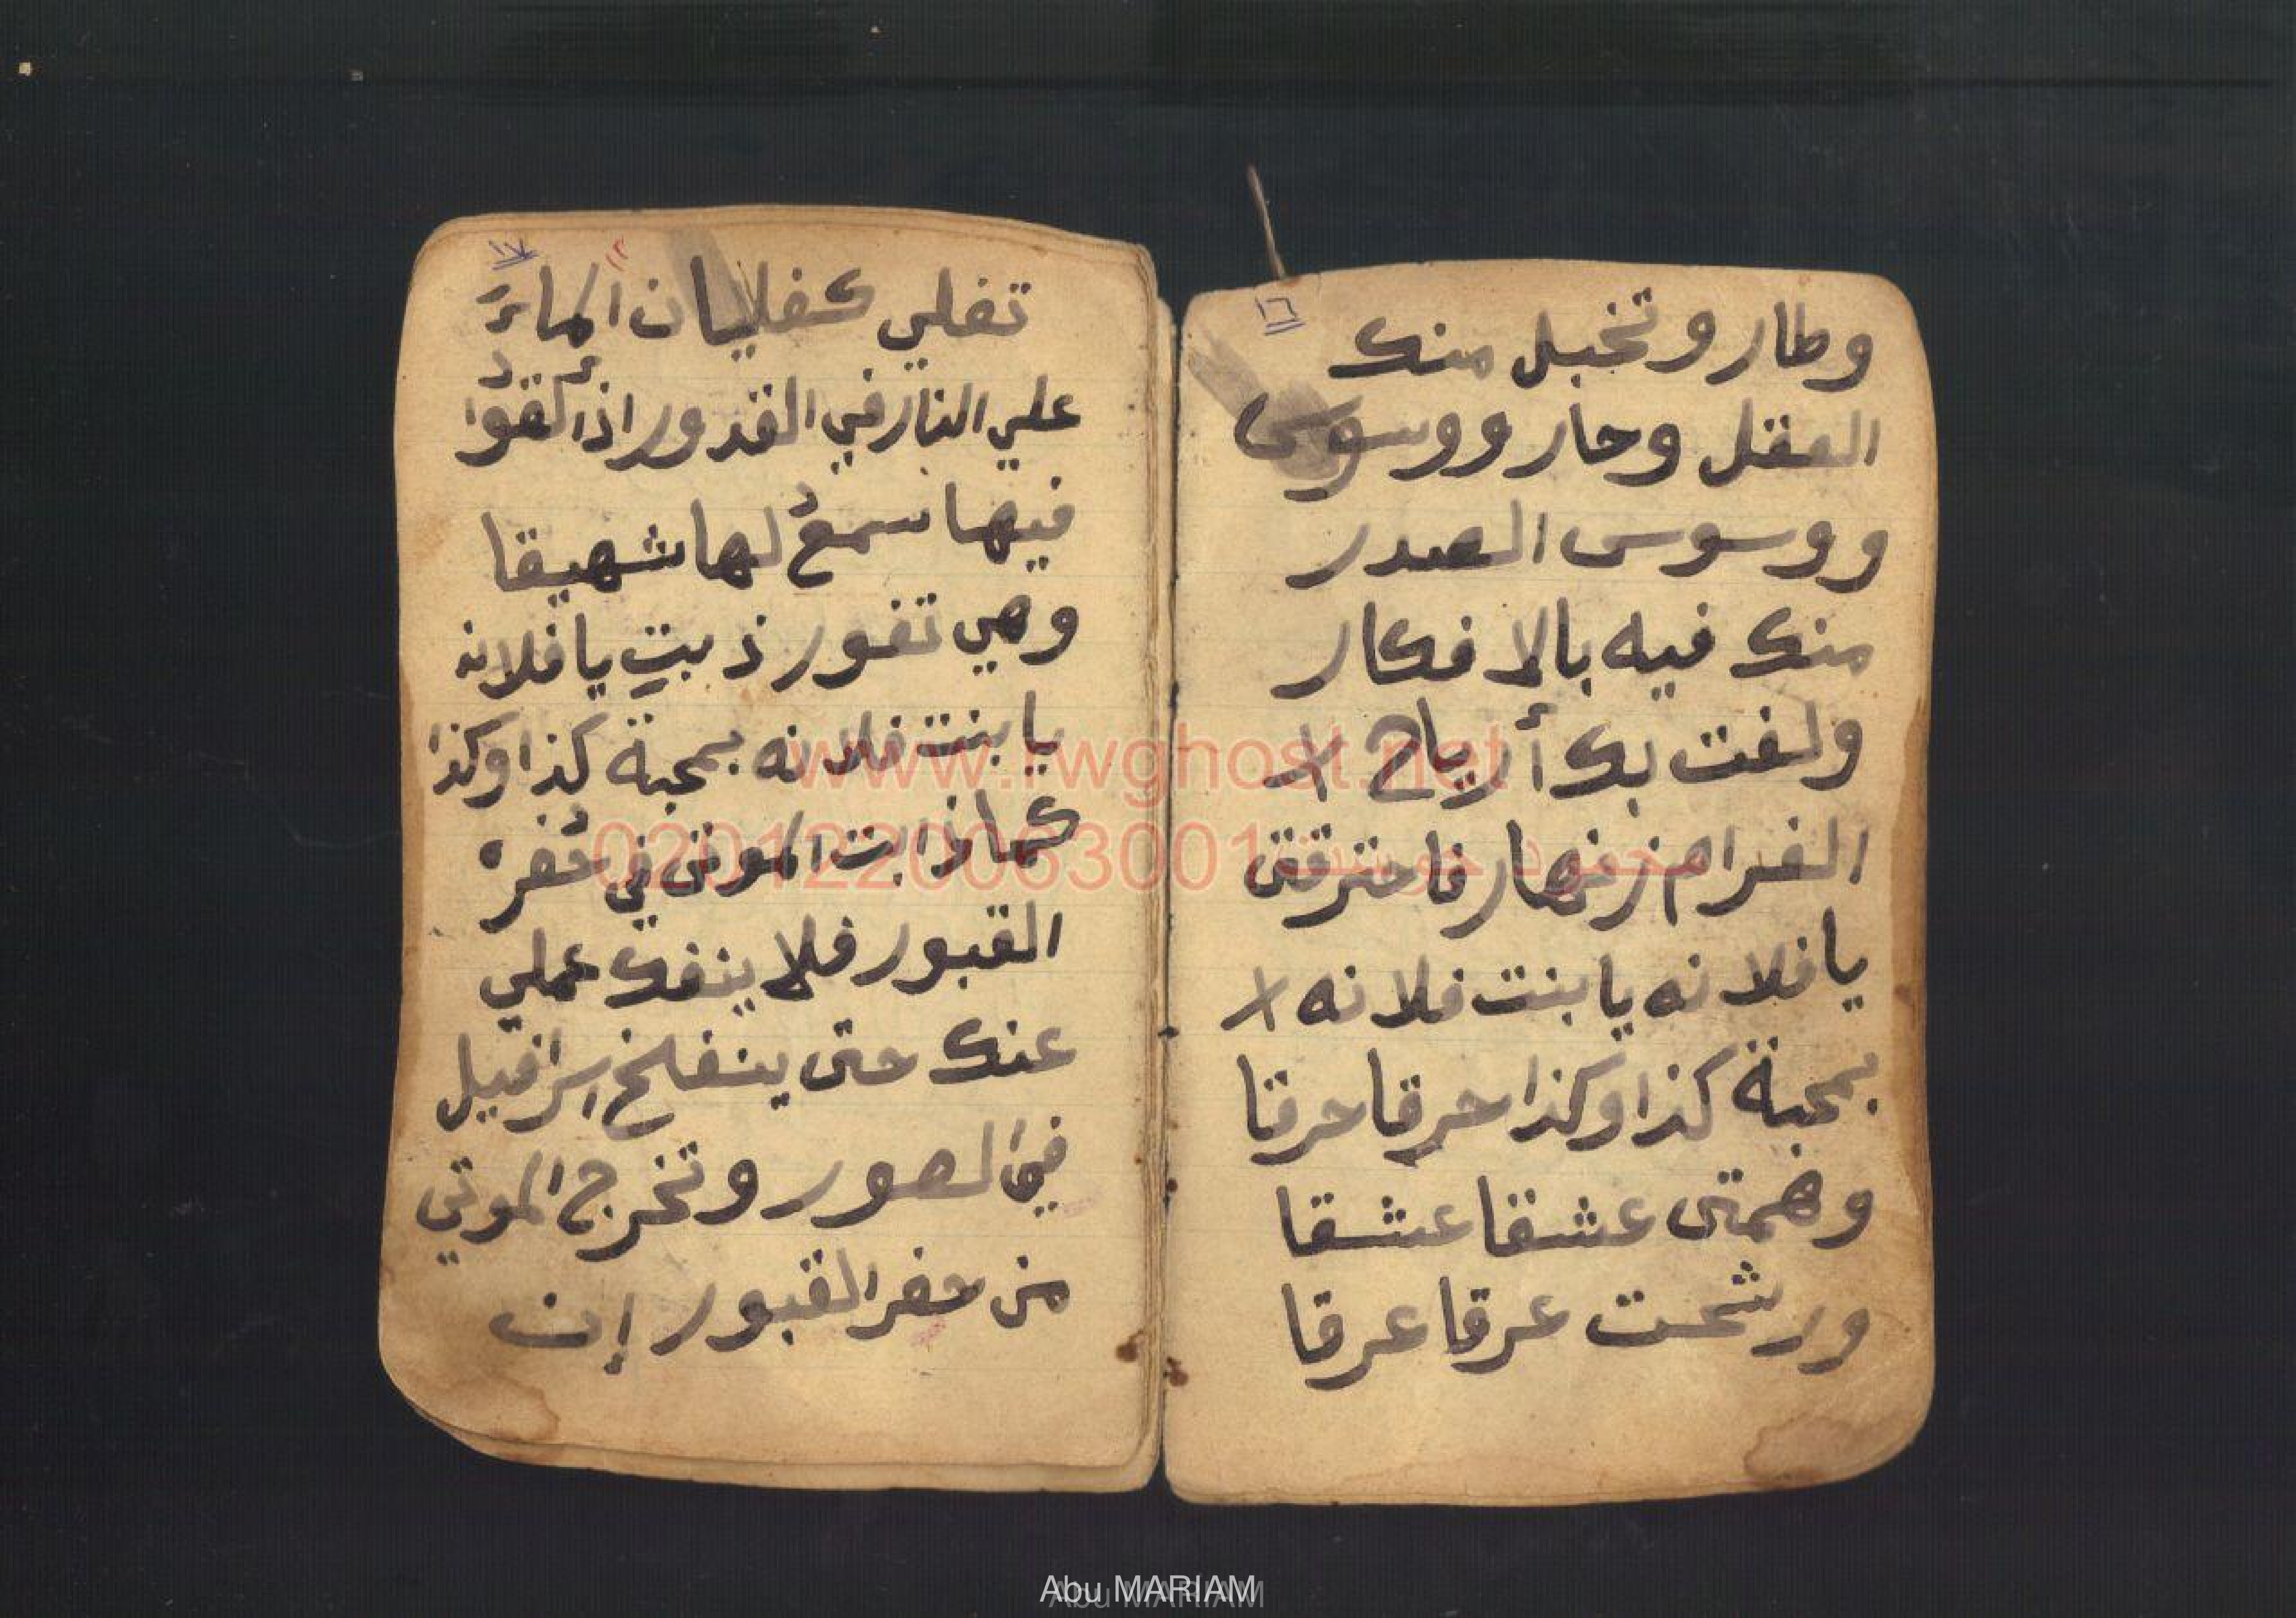 ١٦
وطار وتخبل منك
العقل وحار ووسوس
ووسوس الصدر
منك فيه بالافكار
ولفت بك أرياح
الغرام زنهار فاحترقتى
يا فلانه يا بنت فلانه
بمحبة كذا وكذا حرقا حرقا
وهمتى عشقا عشقا
ورشحت عرقا عرقا
١٧
تغلي كغليان الماءَ
علي النار في القدور اذأ لقوُا
فيها سمعُ لها شهيقا
وهي تفور ذبتِ يا فلانه
يا بنت فلانه بمحبة كذا وكذا
كما ذابت الموتى في حُفره
القبور فلا ينفك عملي
عنك حتى ينفلخ اسرافيل
في الصور وتخرج الموتي
من حفر القبور إن
www.rwghost.net
0201220063001
Abu MARIAM